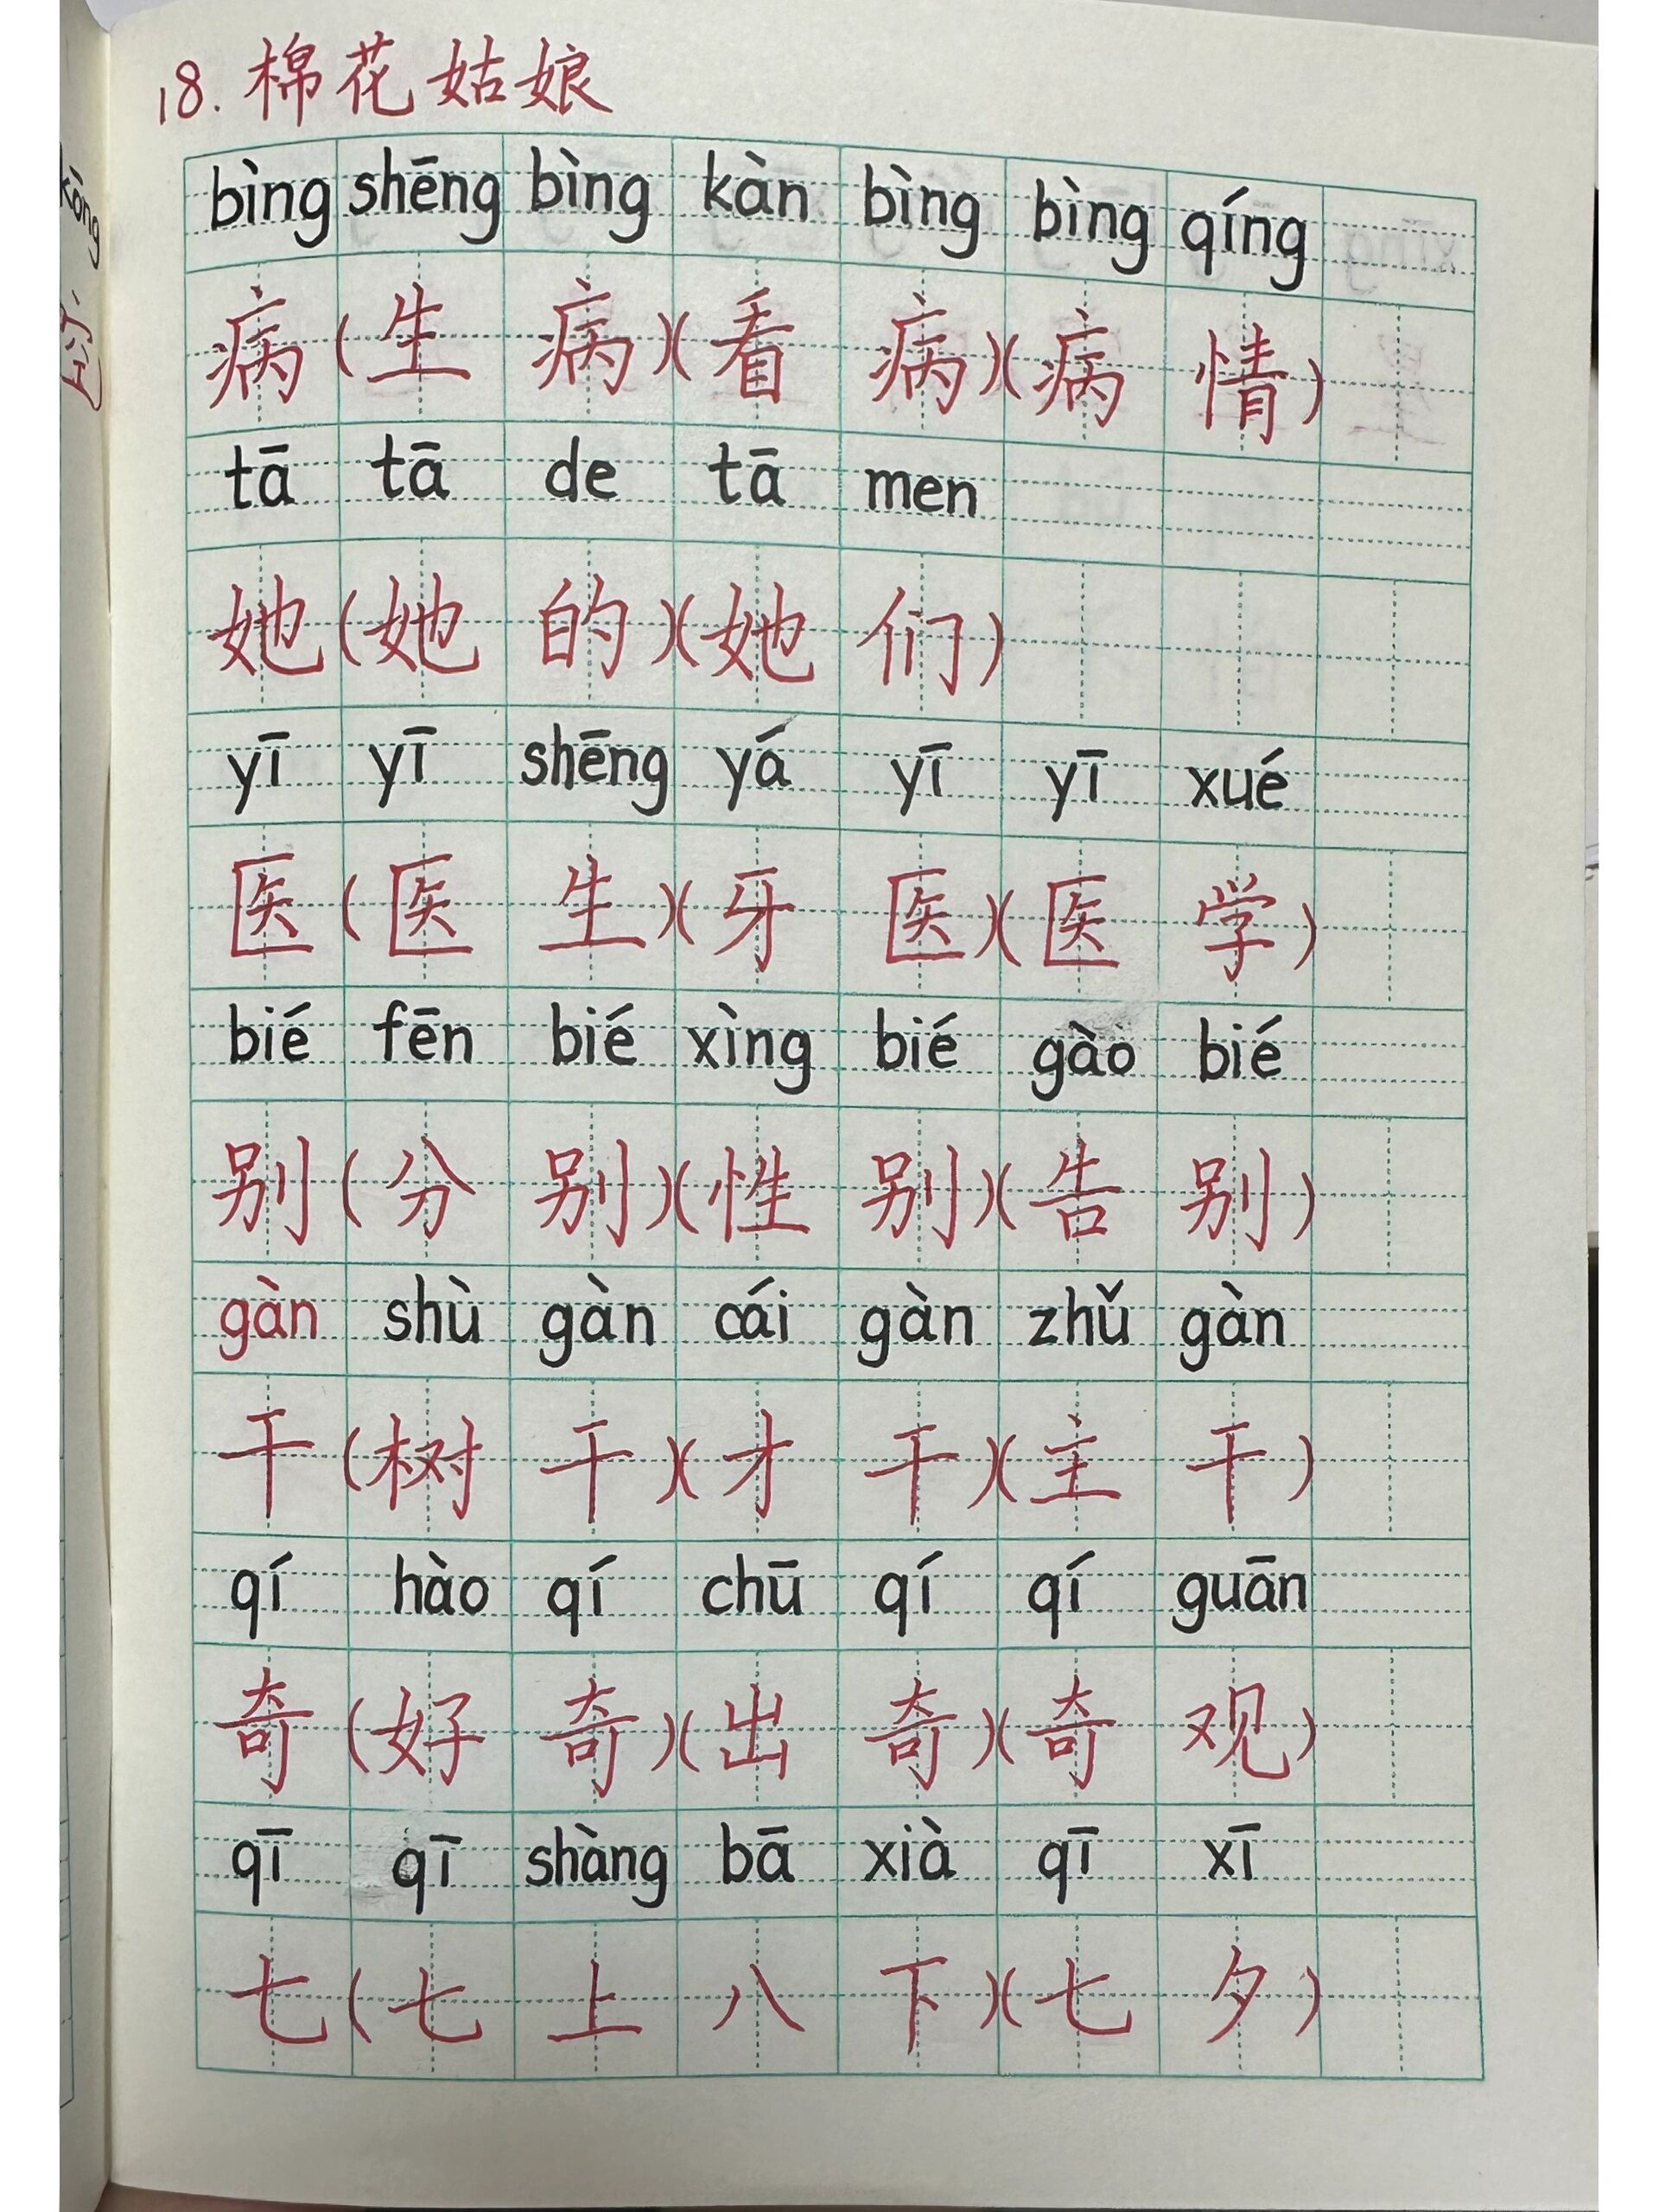 18. 棉花姑娘
bìng shēng bìng kàn bìng bìng qíng
病(生病)(看病)(病情)
tā tā de tā men
她(她的)(她们)
yī yī shēng yá yī yī xué
医(医生)(牙医)(医学)
bié fēn bié xìng bié gào bié
别(分别)(性别)(告别)
gàn shù gàn cái gàn zhǔ gàn
干(树干)(才干)(主干)
qí hào qí chū qí qí guān
奇(好奇)(出奇)(奇观)
qī qī shàng bā xià qī xī
七(七上八下)(七夕)
kōng
空